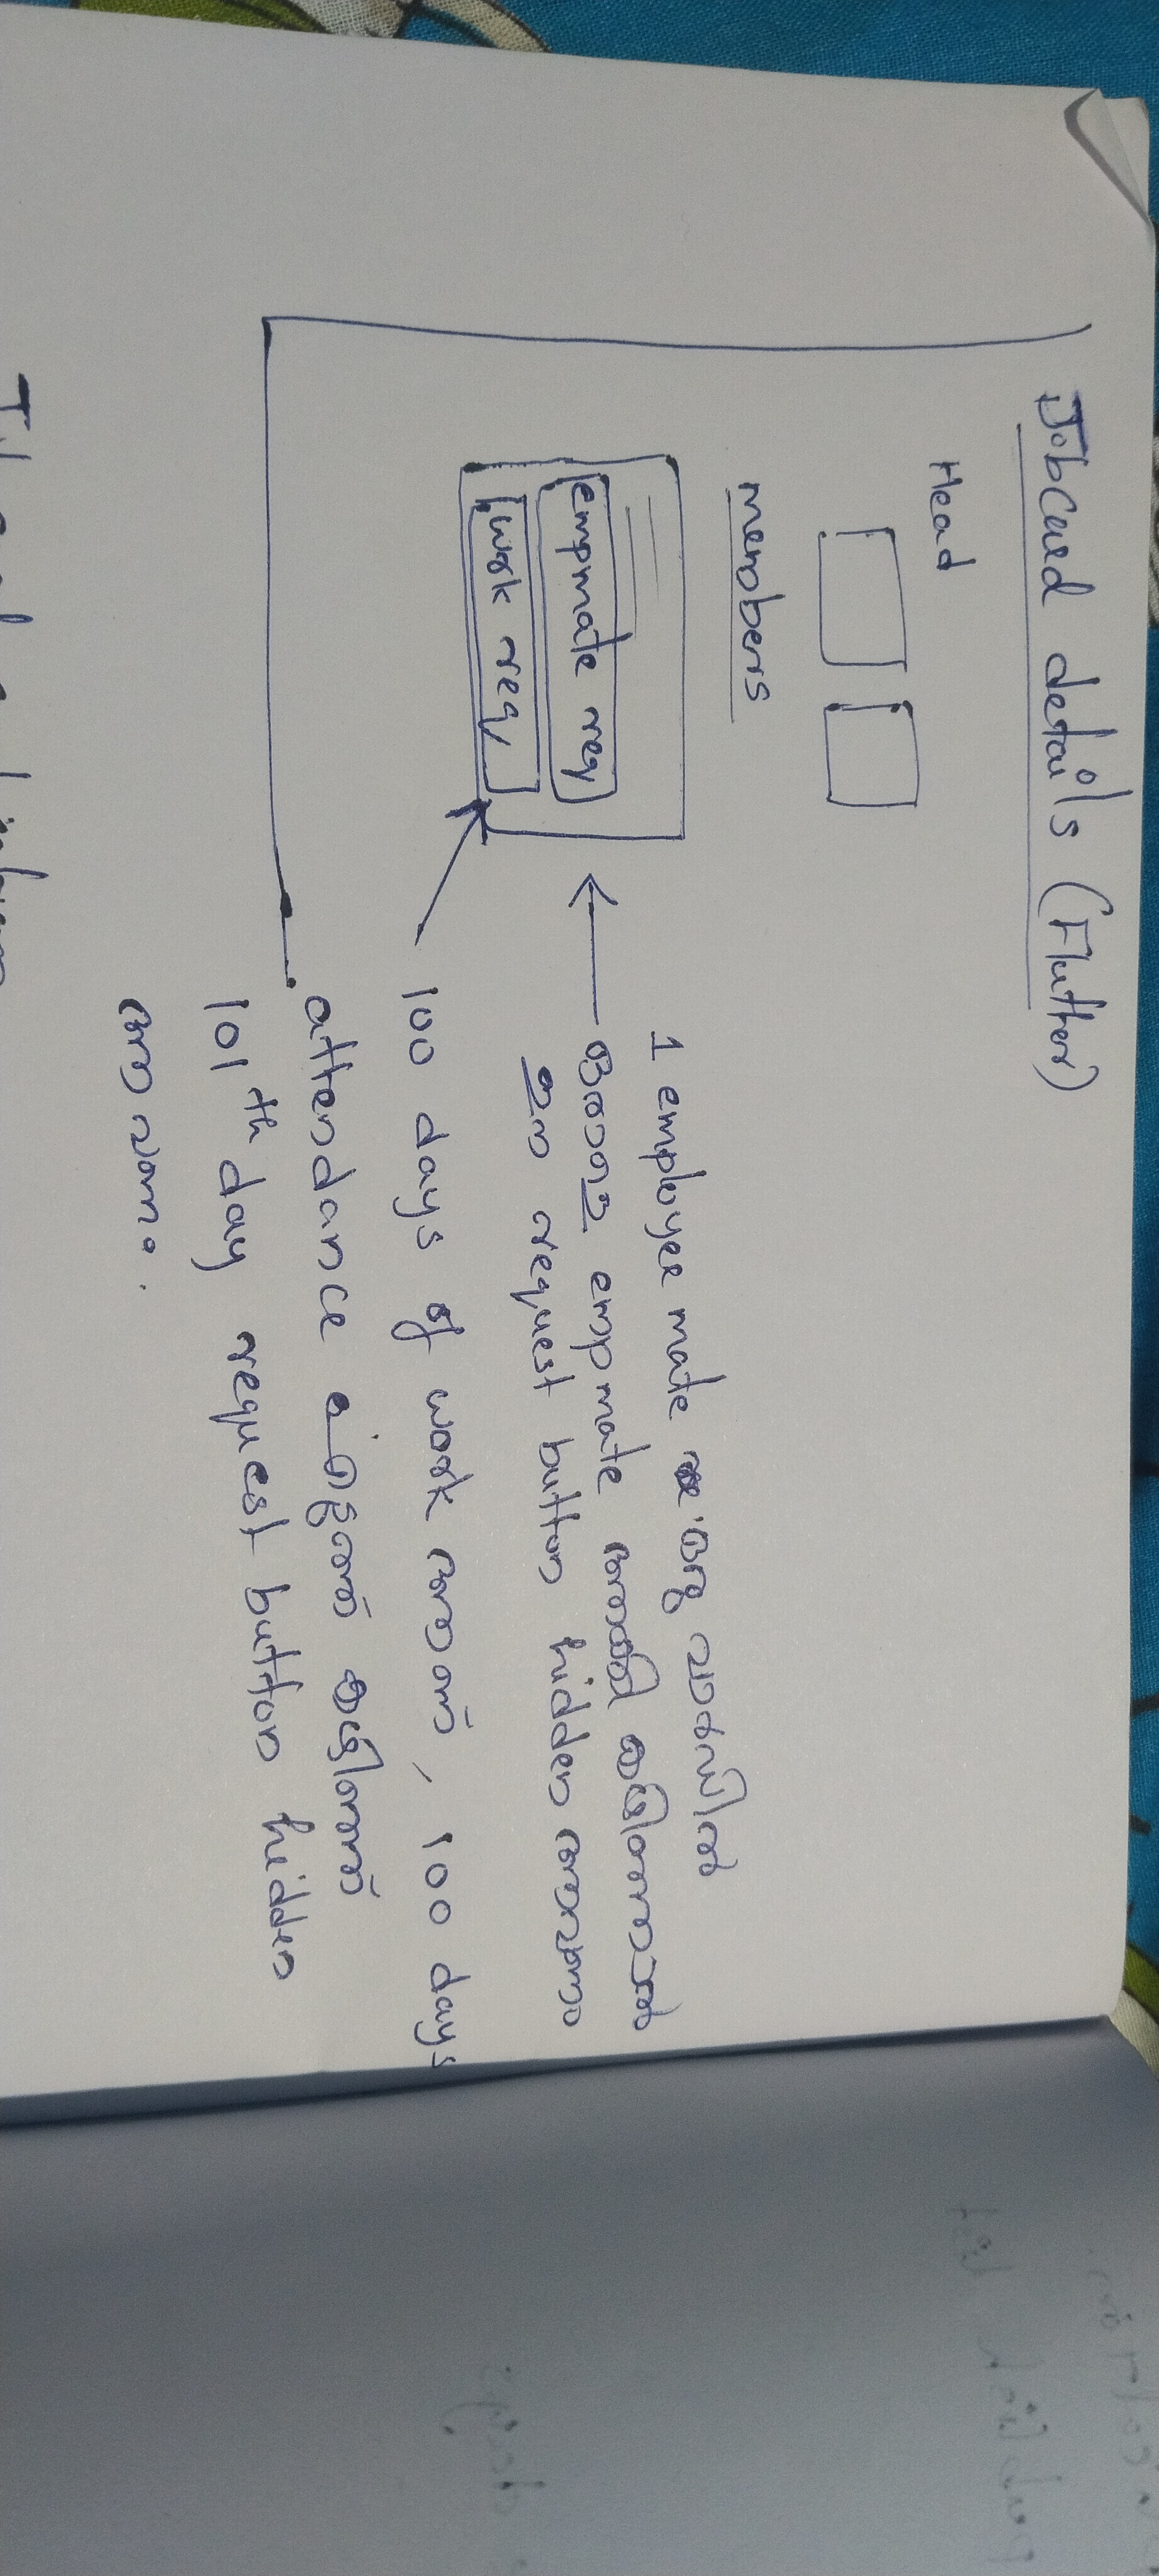 Jobcard details (Flutter)
Head
members
empmate req
work req
1 employee mate ഒരു വാർഡിൽ
ഒരാളെ empmate ആക്കി കഴിഞ്ഞാൽ
ഈ request button hidden ആവണം
100 days of work ആണ്, 100 days
attendance എടുത്ത് കഴിഞ്ഞ്
101th day request button hidden
ആവണം.